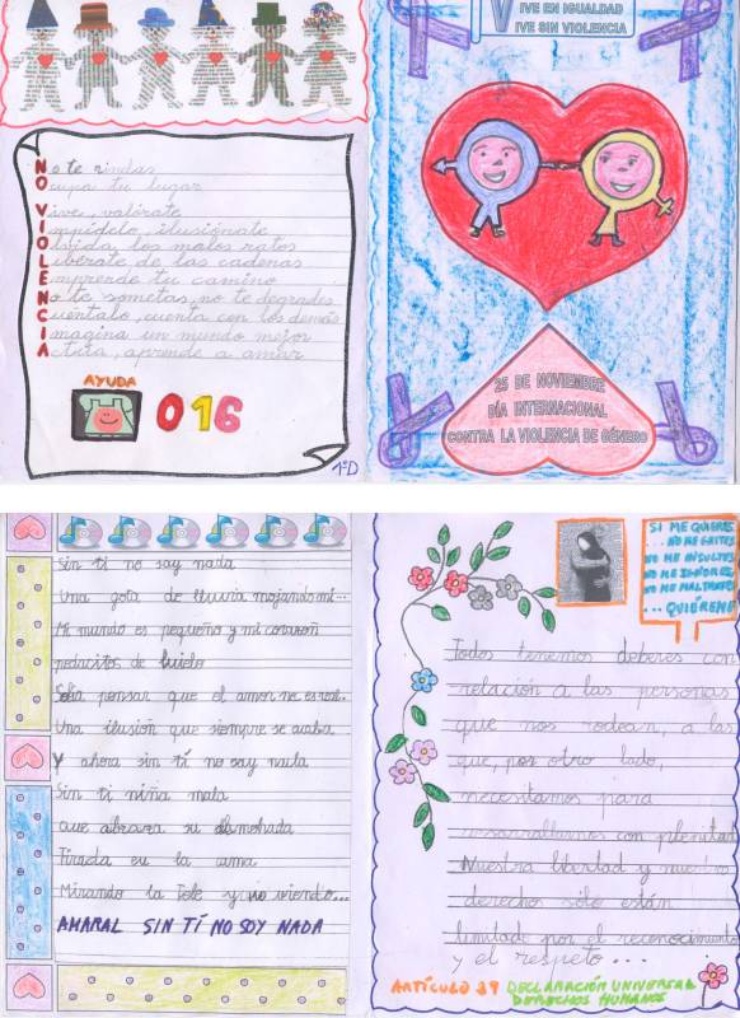 No te rindas
Ocupa tu lugar
Vive, valórate
Impídelo, ilusiónate
Olvida los malos ratos
Libérate de las cadenas
Emprende tu camino
No te sometas, no te degrades
Cuéntalo, cuenta con los demás
Imagina un mundo mejor
Actúa, aprende a amar
AYUDA
016
1ºD
VIVE EN IGUALDAD
VIVE SIN VIOLENCIA
25 DE NOVIEMBRE
DÍA INTERNACIONAL
CONTRA LA VIOLENCIA DE GÉNERO
Sin ti no soy nada
Una gota de lluvia mojando mi...
Mi mundo es pequeño y mi corazón
pedacitos de hielo
Solía pensar que el amor no es real.
Una ilusión que siempre se acaba
Y ahora sin tí no soy nada
Sin ti niña mala
que abraza su almohada
Tirada en la cama
Mirando la Tele y no viendo...
AMARAL SIN TÍ NO SOY NADA
SI ME QUIERES
... NO ME GRITES
NO ME INSULTES
NO ME IGNORES
NO ME MALTRATES
... QUIÉREME
Todos tenemos deberes con
relación a las personas
que nos rodean, a las
que, por otro lado,
necesitamos para
desarrollarnos con plenitud
Nuestra libertad y nuestro
derecho sólo están
limitado por el reconocimiento
y el respeto...
ARTÍCULO 29 DECLARACIÓN UNIVERSAL
DERECHOS HUMANOS